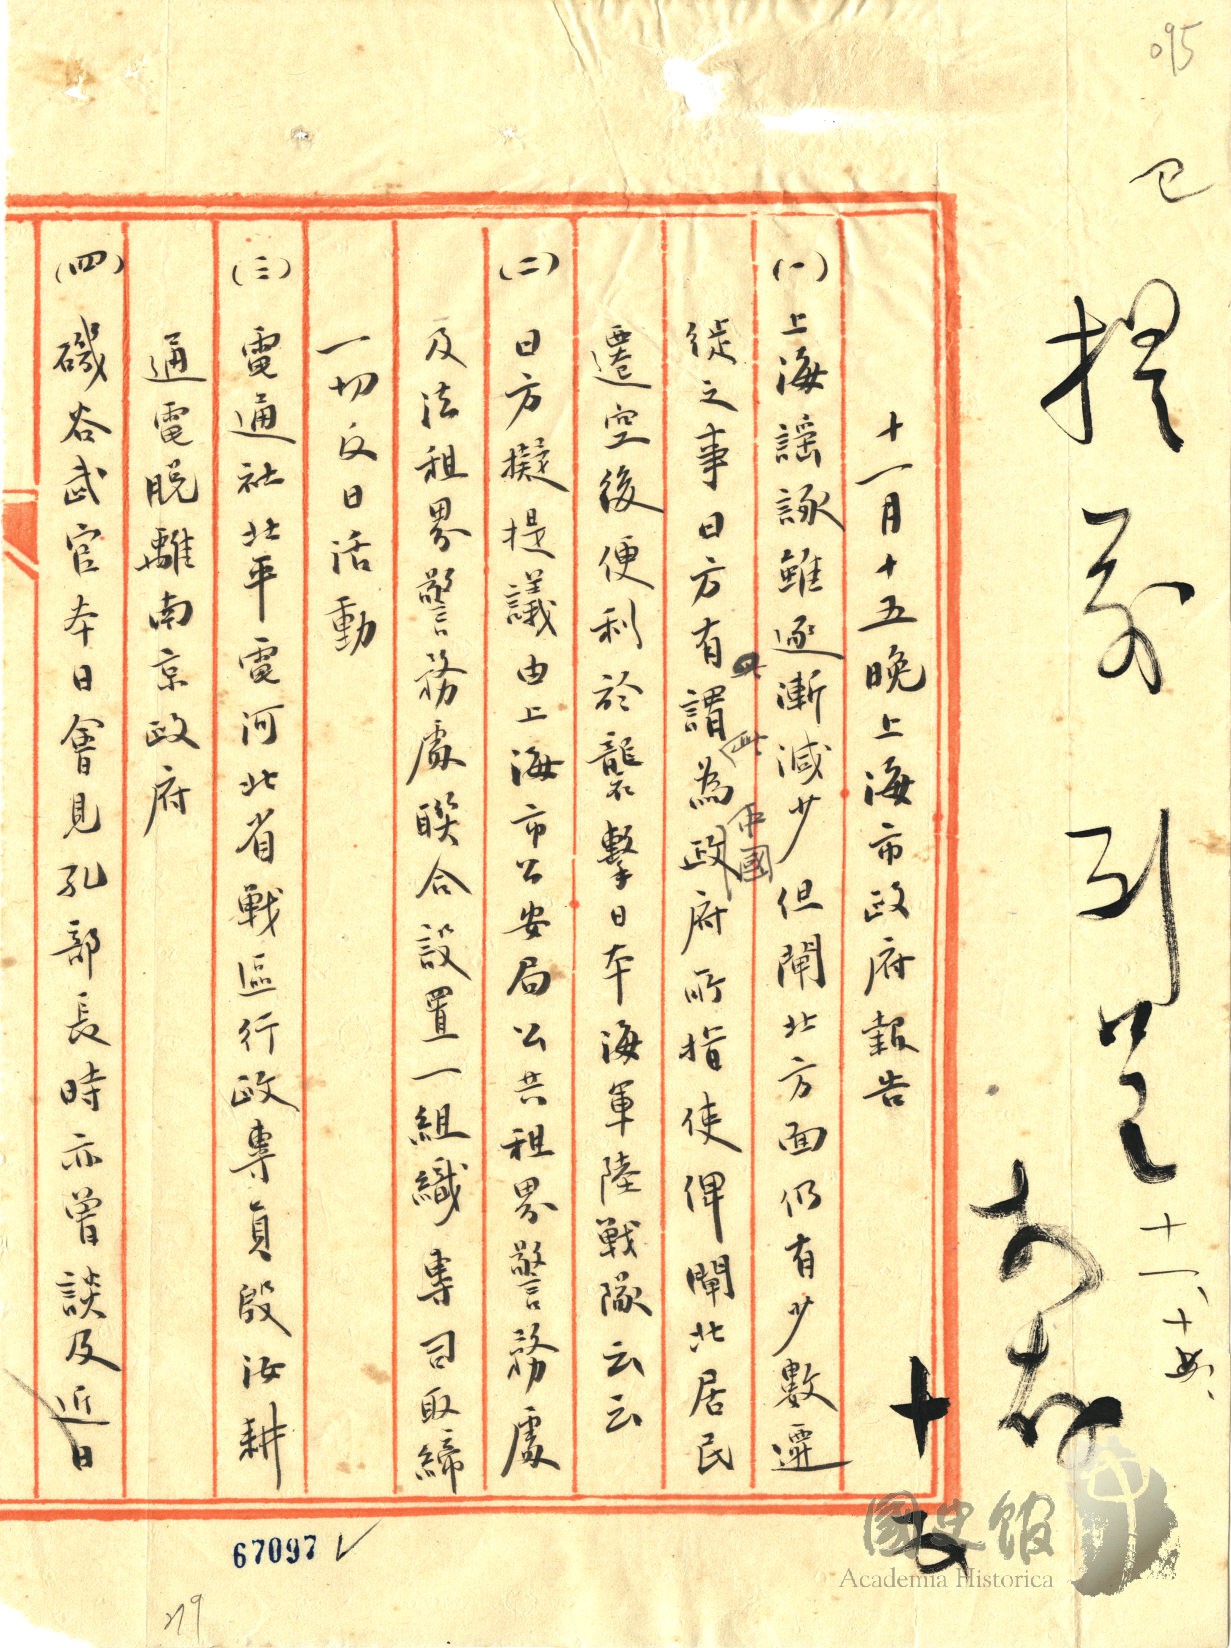 095
已
提前引呈 十一、十五、
十一月十五晚上海市政府報告
(一)上海謡諑雖逐漸減少但閘北方面仍有少數遷
徙之事日方有謂此為中國政府所指使俾閘北居民
遷空後便利於襲擊日本海軍陸戰隊云云
(二)日方擬提議由上海市公安局公共租界警務處
及法租界警務處聯合設置一組織專司取締
一切反日活動
(三)電通社北平電河北省戰區行政專員殷汝耕
通電脱離南京政府
(四)磯谷武官本日會見孔部長時亦曾談及近日
67097
219
國史館
Academia Historica